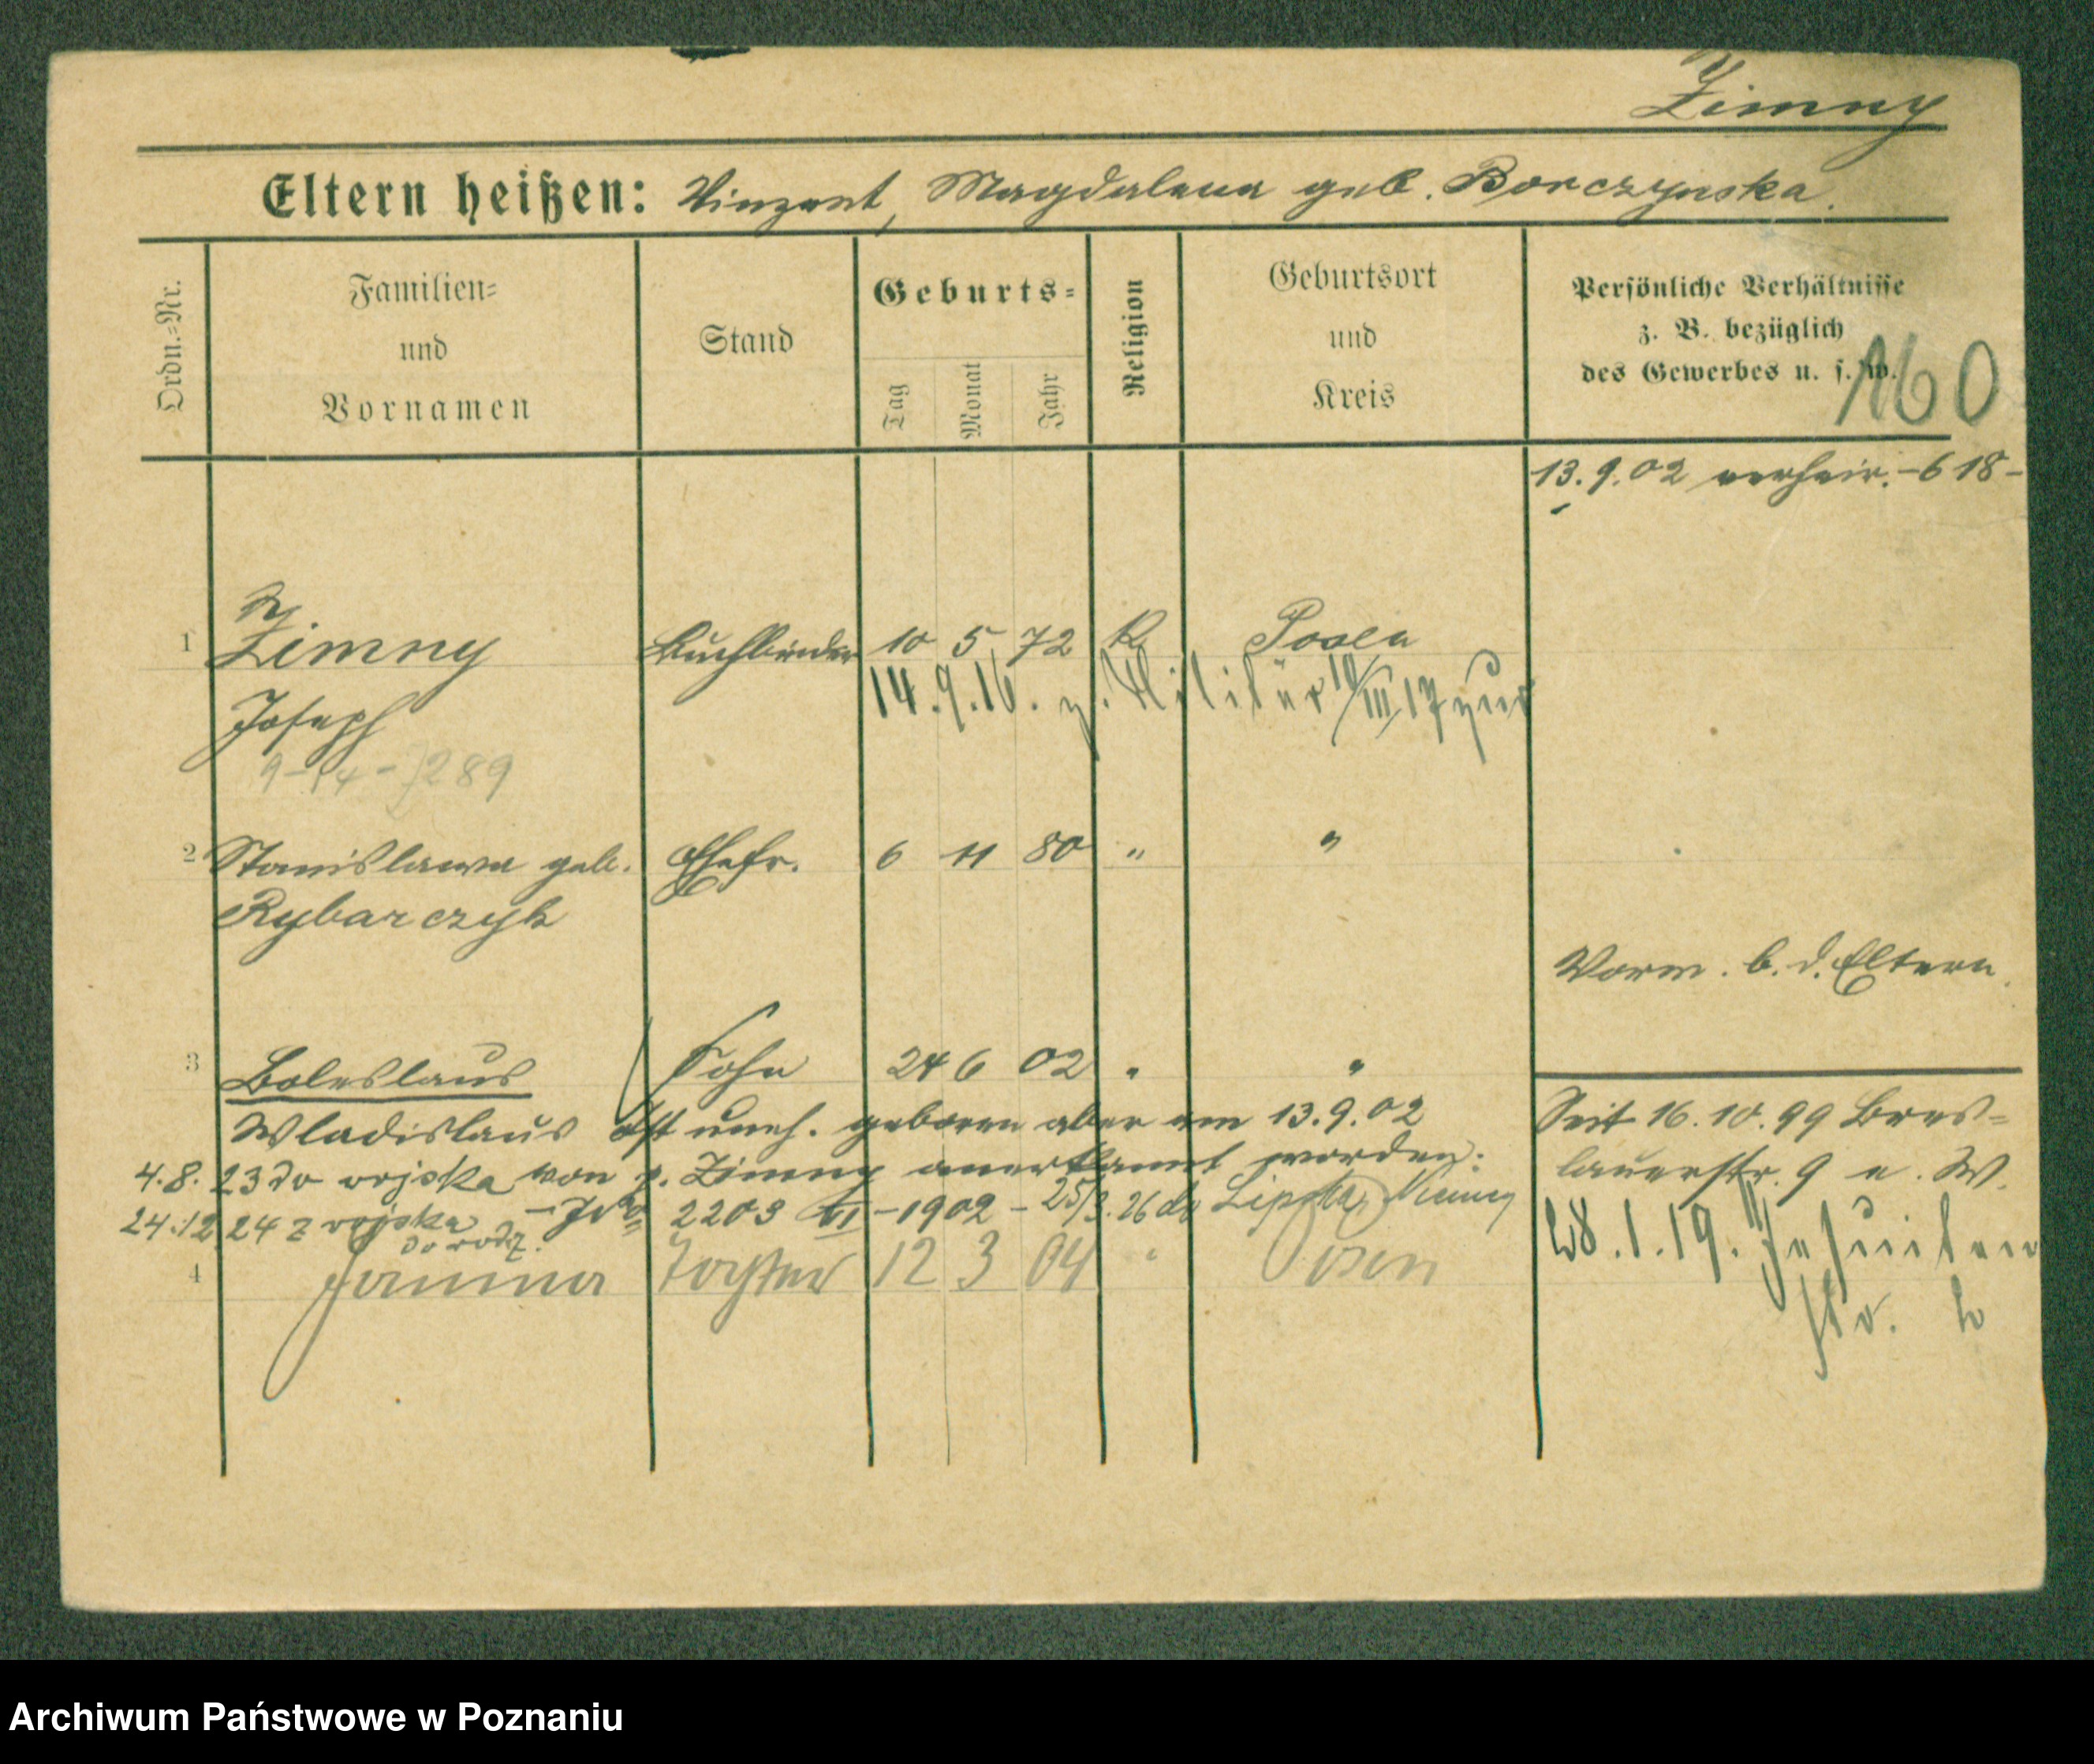 Zimny
Eltern heißen: Vinzent, Magdalena geb. Borczynska.
Ordn.=Nr.
Familien=
und
Vornamen
Stand
Geburts=
Tag
Monat
Jahr
Religion
Geburtsort
und
Kreis
Persönliche Verhältnisse
z. B. bezüglich
des Gewerbes u. s. w.
160
13.9.02 verheir. -618-
1 Zimny Buchbinder 10 5 72 K. Posen
14.9.16. z. Militär 19/III 17 zur
Joseph
2 Stanislawa geb. Ehefr. 6 11 80 " "
Rybarczyk
Vorm. b. d. Eltern
3 Boleslaus Sohn 24 6 02 " "
Wladislaus Ist uneh. geboren aber am 13.9.02
Seit 16.10.99 Bres=
4.8.23 do wojska von p. Zimny anerkannt worden.
lauerstr. 9 a. W.
24.12.24 z wojska 2203 VI -1902 - 25/3.26 do Lipska, Niemcy
do rodz.
28.1.19. Jesuiten
4 Janina Tochter 12 3 04 " Posen
str.
Archiwum Państwowe w Poznaniu